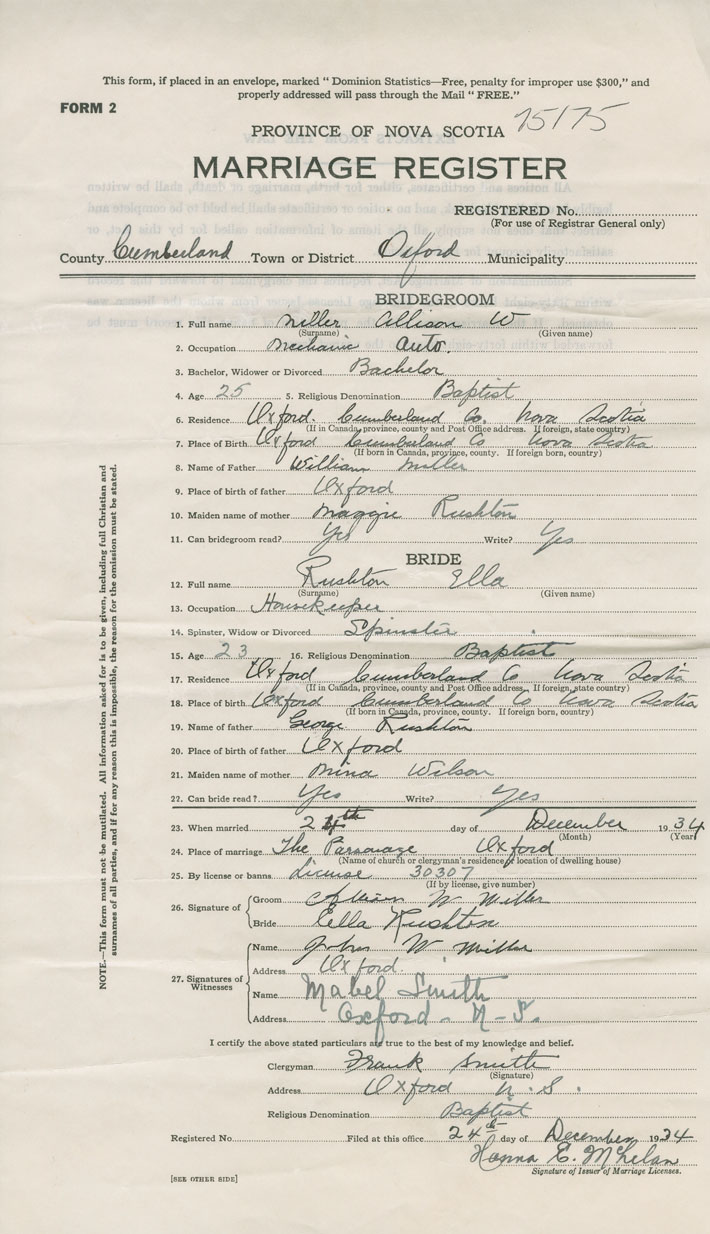 This form, if placed in an envelope, marked " Dominion Statistics—Free, penalty for improper use $300," and
properly addressed will pass through the Mail " FREE."
FORM 2
PROVINCE OF NOVA SCOTIA 15175
MARRIAGE REGISTER
REGISTERED No.
(For use of Registrar General only)
County Cumberland Town or District Oxford Municipality
BRIDEGROOM
1. Full name Miller Allison W
(Surname) (Given name)
2. Occupation Mechanic Auto.
3. Bachelor, Widower or Divorced Bachelor
4. Age 25 5. Religious Denomination Baptist
6. Residence Oxford. Cumberland Co. Nova Scotia
(If in Canada, province, county and Post Office address. If foreign, state country)
7. Place of Birth Oxford Cumberland Co Nova Scotia
(If born in Canada, province, county. If foreign born, country)
8. Name of Father William Miller
9. Place of birth of father Oxford
10. Maiden name of mother Maggie Rushton
11. Can bridegroom read? Yes Write? Yes
BRIDE
12. Full name Rushton Ella
(Surname) (Given name)
13. Occupation Housekeeper
14. Spinster, Widow or Divorced Spinster
15. Age 23 16. Religious Denomination Baptist
17. Residence Oxford Cumberland Co Nova Scotia
(If in Canada, province, county and Post Office address. If foreign, state country)
18. Place of birth Oxford Cumberland Co Nova Scotia
(If born in Canada, province, county. If foreign born, country)
19. Name of father George Rushton
20. Place of birth of father Oxford
21. Maiden name of mother Mina Wilson
22. Can bride read? Yes Write? Yes
23. When married 24th day of December 1934
(Month) (Year)
24. Place of marriage The Parsonage Oxford
(Name of church or clergyman's residence or location of dwelling house)
25. By license or banns License 30307
(If by license, give number)
26. Signature of
Groom Allison W Miller
Bride Ella Rushton
27. Signatures of Witnesses
Name John W Miller
Address Oxford.
Name Mabel Smith
Address Oxford - N-S.
I certify the above stated particulars are true to the best of my knowledge and belief.
Clergyman Frank Smith
(Signature)
Address Oxford N.S.
Religious Denomination Baptist
Registered No. Filed at this office 24th day of December 1934
Hanna E. McPhelan
Signature of Issuer of Marriage Licenses.
[SEE OTHER SIDE]
NOTE.—This form must not be mutilated. All information asked for is to be given, including full Christian and
surnames of all parties, and if for any reason this is impossible, the reason for the omission must be stated.